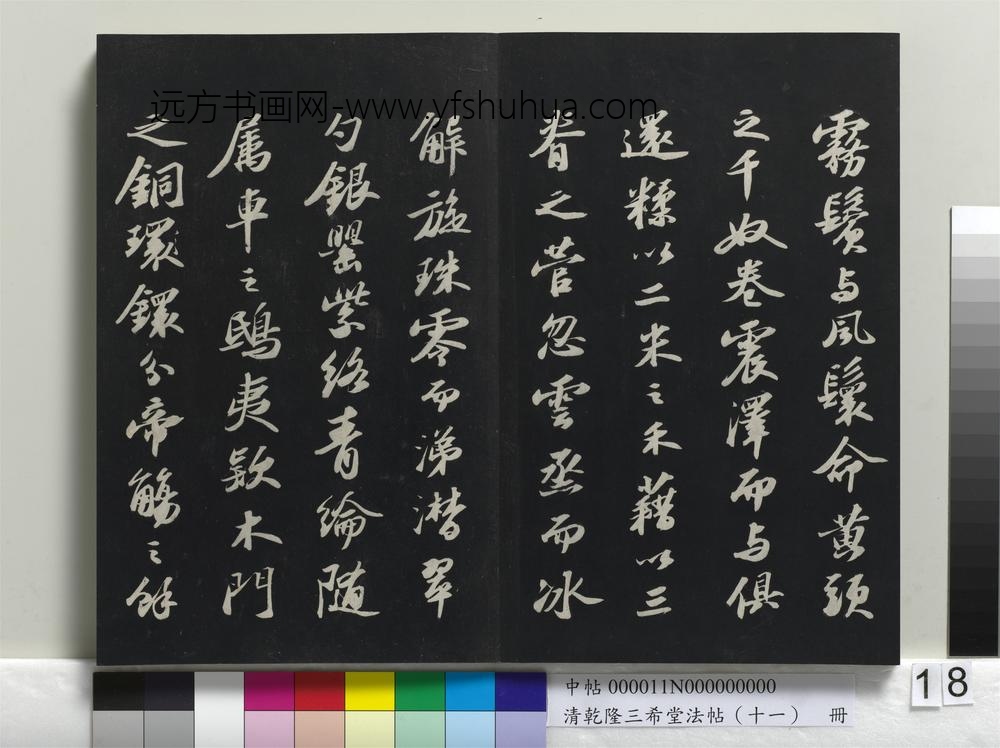 霧鬢与風鬟命黄頭
之千奴卷震澤而与俱
還糅以二米之禾藉以三
脊之菅忽雲烝而冰
解旋珠零而涕潸翠
勺銀罌紫絡青綸随
属車之鴟夷欵木門
之銅環鐶分帝觴之餘
远方书画网-www.yfshuhua.com
中帖 000011N000000000
清乾隆三希堂法帖（十一） 冊
18